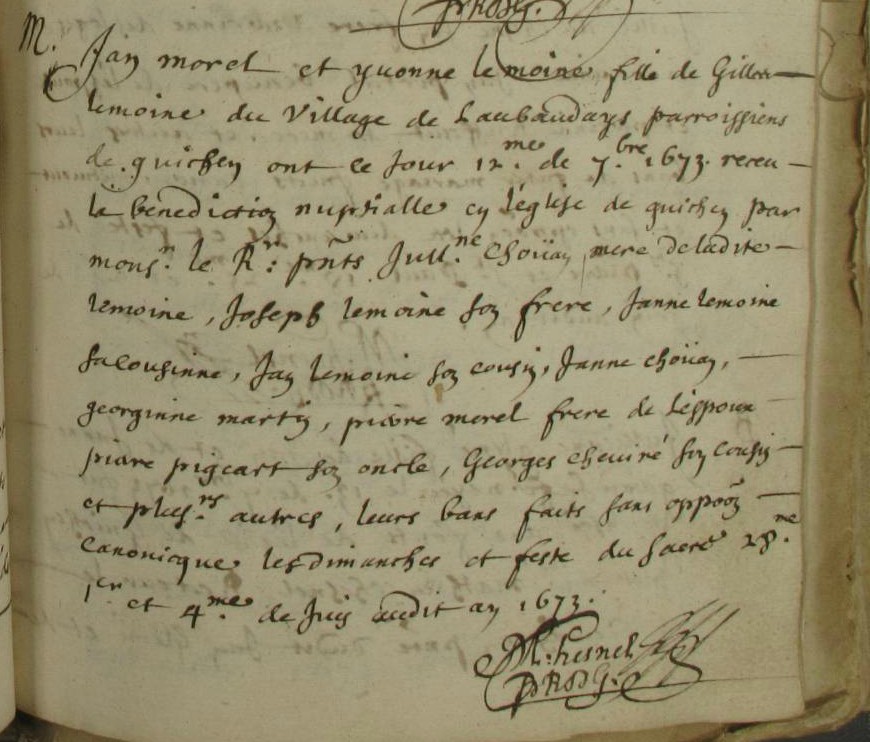 PRBDG.
M.
Jan morel et yvonne lemoine fille de Gilles
lemoine du village de Laubaudays parroissiens
de guichen ont ce jour 12.me de 7.bre 1673. receu
la benediction nuptialle en l'église de guichen par
mons.r le Rr: pñts Jull.ne choüan mere deladite
lemoine, Joseph lemoine son frere, Janne lemoine
sa cousinne, Jan lemoine son cousin, Janne choüan,
georginne martin, pierre morel frere de l'éspoux
pierre pigeart son oncle, Georges cheviré son cousin
et plus.rs autres, leurs bans faits sans oppoõn
canonicque les dimanches et feste du sacre 28.me
1er et 4.me de Juin audit an 1673.